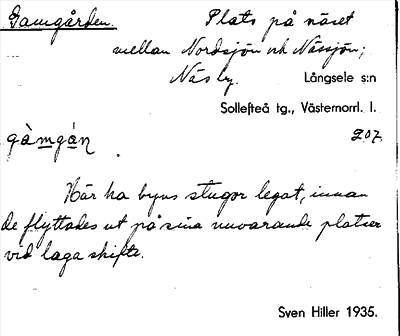 Gamgården.
Plats på näset
mellan Nordsjön och Nässjön;
Näs by.
Långsele s:n
Sollefteå tg., Västernorrl. l.
gàmgán
207.
Här ha byns stugor legat, innan
de flyttades ut på sina nuvarande platser
vid laga skifte.
Sven Hiller 1935.